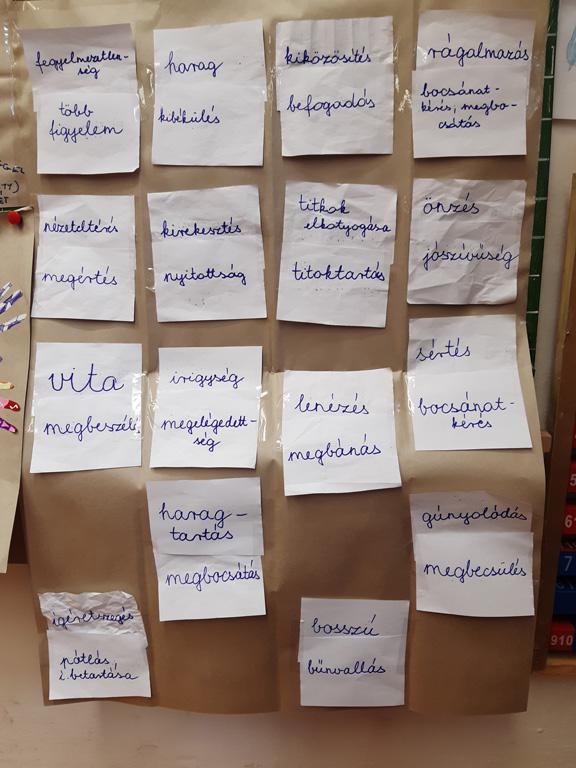 fegyelmezetlen-
ség
több
figyelem
harag
kibékülés
kiközösítés
befogadás
rágalmazás
bocsánat-
kérés, megbo-
csátás
nézeteltérés
megértés
kirekesztés
nyitottság
titkok
elkotyogása
titoktartás
önzés
jószívűség
vita
megbeszélé
irigység
megelégedett-
ség
lenézés
megbánás
sértés
bocsánat-
kérés
harag-
tartás
megbocsátás
gúnyolódás
megbecsülés
ígéretszegés
pótlás
i. betartása
bosszú
bűnvallás
5
6
7
910